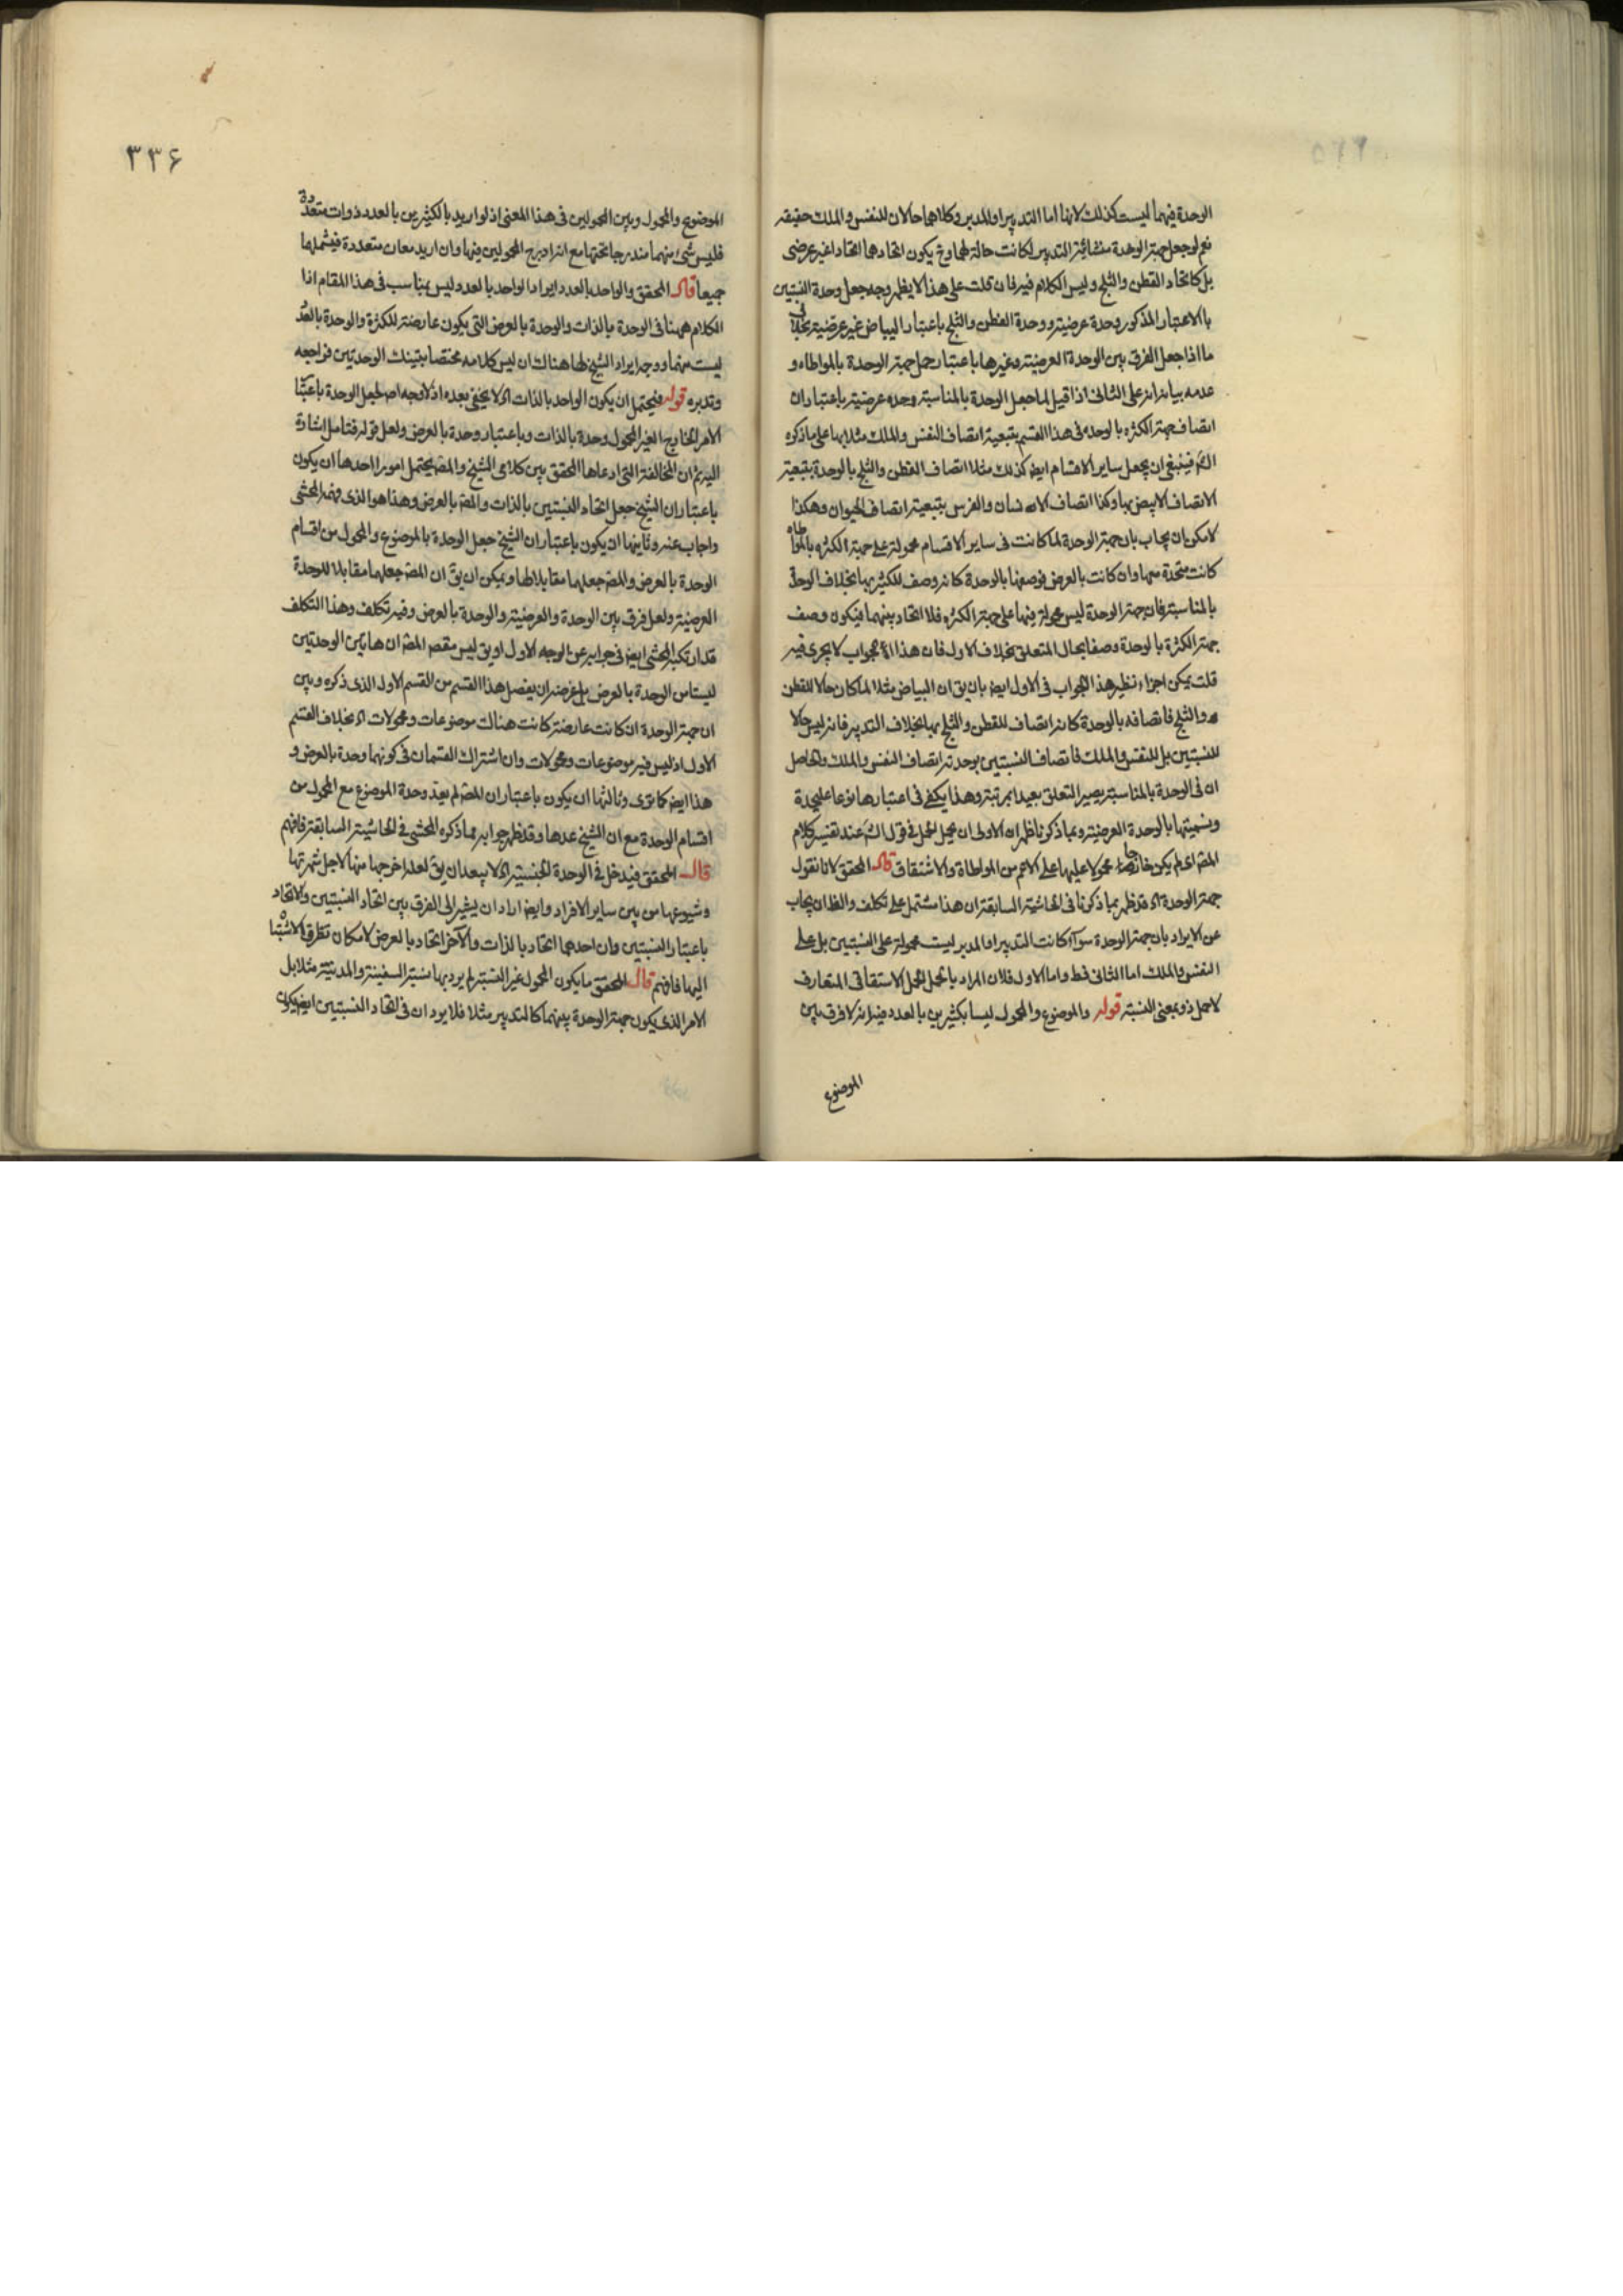 الوحدة فيهما ليست كذلك لانها اما التدبير او المدبر وكلاهما حالان للنفس والملك حقيقه
نعم لو جعل جهة الوحدة منشائية التدبير لكانت حالة لهما وح يكون اتحادهما اتحادا غير عرضى
بل كاتحاد القطن والثلج وليس الكلام فيه فان قلت على هذا لا يظهر وجه جعل وحدة النسبتين
بالاعتبار المذكور وحدة عرضية ووحدة القطن والثلج باعتبار البياض غير عرضية بخلاف
ما اذا جعل الفرق بين الوحدة العرضية وغيرها باعتبار حمل جهة الوحدة بالمواطاه و
عدمه بيانه انه على الثانى اذا قيل لما جعل الوحدة بالمناسبة وحده عرضية باعتبار ان
اتصاف جهة الكثره بالوحده فى هذا القسم بتبعية اتصاف النفس والملك مثلا بها على ما ذكره
الشم فينبغى ان يجعل ساير الاقسام ايض كذلك مثلا اتصاف القطن والثلج بالوحدة بتبعية
الاتصاف الابيض بها وكذا اتصاف الانسان والفرس بتبعية اتصاف الحيوان وهكذا
لامكن ان يجاب بان جهة الوحدة لما كانت فى ساير الاقسام محمولة على جهة الكثره بالمواطاه
كانت متحدة معها وان كانت بالعرض فوصفها بالوحدة كانه وصف للكثير بها بخلاف الوحدة
بالمناسبة فان جهة الوحدة ليس محمولة فيها على جهة الكثره فلا اتحاد بينهما فيكون وصف
جهة الكثرة بالوحدة وصفا بحال المتعلق بخلاف الاول فان هذا الجواب لا يجرى فيه
قلت يمكن اجراء نظير هذا الجواب فى الاول ايض بان يق ان البياض مثلا لما كان حالا للقطن
والثلج فاتصافه بالوحدة كانه اتصاف للقطن والثلج بها بخلاف التدبير فانه ليس حالا
للنسبتين بل للنفس والملك فاتصاف النسبتين بوحدته اتصاف النفس والملك والحاصل
ان فى الوحدة بالمناسبة يصير التعلق بعيدا بمرتبة وهذا يكفى فى اعتبارها نوعا عليحدة
وتسميتها بالوحدة العرضية وبما ذكرنا ظهر ان الاولى ان يحمل الحمل فى قول الش عند تفسير كلام
المصم اى لم يكن خارجا محمولا عليها على الاعم من المواطاة والاشتقاق قال المحقق لانا نقول
جهة الوحدة اه قد ظهر بما ذكرنا فى الحاشية السابقة ان هذا مشتمل على تكلف والظ ان يجاب
عن الايراد بان جهة الوحدة سوآء كانت التدبير او المدبر ليست محمولة على النسبتين بل على
النفس والملك اما الثانى فظ واما الاول فلان المراد بالحمل الحمل الاشتقاقى المتعارف
لا حمل ذو بمعنى النسبة قوله والموضوع والمحمول ليسا بكثيرين بالعدد فيه انه لا فرق بين
الموضوع
٣٣۶
الموضوع والمحمول وبين المحمولين فى هذا المعنى اذ لو اريد بالكثيرين بالعدد ذوات متعددة
فليس شئ منهما مندرجا تحتها مع انه ادرج المحمولين فيها وان اريد معان متعددة فيشملهما
جميعا قال المحقق والواحد بالعدد ايراد الواحد بالعدد ليس بمناسب فى هذا المقام اذا
الكلام ههنا فى الوحدة بالذات والوحدة بالعرض التى يكون عارضة للكثرة والوحدة بالعدد
ليست منهما ووجه ايراد الشيخ لها هناك ان ليس كلامه مختصا بتينك الوحدتين فراجعه
وتدبره قوله فيحتمل ان يكون الواحد بالذات اه لا يخفى بعده اذ لا وجه اصلا لجعل الوحدة باعتبار
الامر الخارج الغير المحمول وحدة بالذات وباعتبار وحدة بالعرض ولعل قوله فتامل اشارة
اليه ثم ان المخالفة التى ادعاها المحقق بين كلامى الشيخ والمصم يحتمل امورا احدها ان يكون
باعتبار ان الشيخ جعل اتحاد النسبتين بالذات والمصم بالعرض وهذا هو الذى فهمه المحشى
واجاب عنه وثانيها ان يكون باعتبار ان الشيخ جعل الوحدة بالموضوع والمحمول من اقسام
الوحدة بالعرض والمصم جعلهما مقابلا لها ويمكن ان يق ان المصم جعلهما مقابلا للوحدة
العرضية ولعل فرق بين الوحدة والعرضية والوحدة بالعرض وفيه تكلف وهذا التكلف
قد ارتكبه المحشى ايض فى جوابه عن الوجه الاول او يق ليس مقصم المصم ان هاتين الوحدتين
ليستا من الوحدة بالعرض بل غرضه ان يفصل هذا القسم من القسم الاول الذى ذكره وبين
ان جهة الوحدة ان كانت عارضة كانت هناك موضوعات ومحمولات اه بخلاف القسم
الاول اذ ليس فيه موضوعات ومحمولات وان اشترك القسمان فى كونهما وحدة بالعرض و
هذا ايض كما ترى وثالثها ان يكون باعتبار ان المصم لم يعد وحدة الموضوع مع المحمول من
اقسام الوحدة مع ان الشيخ عدها وقد ظهر جوابه مما ذكره المحشى فى الحاشية السابقة فافهم
قال المحقق فيدخل فى الوحدة الجنسية اه لا يبعد ان يق لعله اخرجها منها لاجل شهرتها
وشيوعها من بين ساير الافراد وايض اراد ان يشير الى الفرق بين اتحاد النسبتين والاتحاد
باعتبار النسبتين وان احدهما اتحاد بالذات والآخر اتحاد بالعرض لامكان تطرق الاشتباه
اليها فافهم قال المحقق ما يكون المحمول غير النسبة لم يرد بها نسبة السفينة والمدينة مثلا بل
الامر الذى يكون جهة الوحدة بينهما كالتدبير مثلا فلا يرد ان فى اتحاد النسبتين ايض يكون